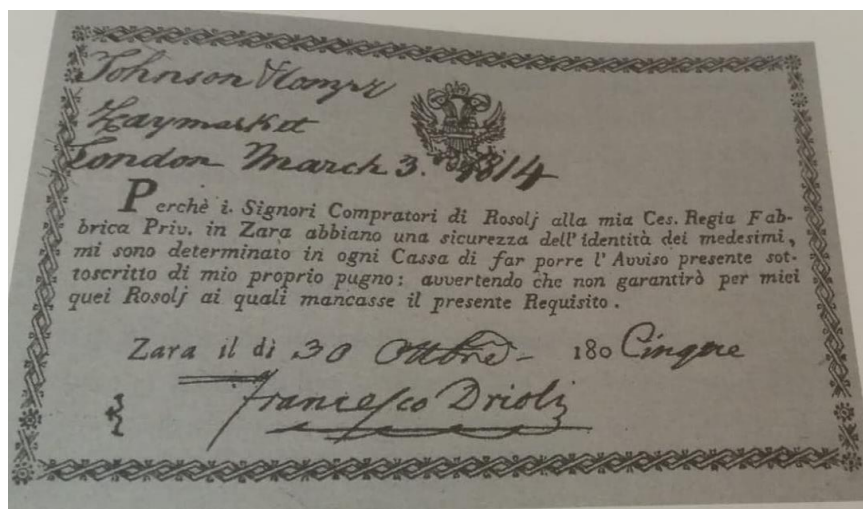 Johnson & Compy
Haymarket
London March 3. 1814
Perchè i. Signori Compratori di Rosolj alla mia Ces. Regia Fab-
brica Priv. in Zara abbiano una sicurezza dell' identità dei medesimi,
mi sono determinato in ogni Cassa di far porre l' Avviso presente sot-
toscritto di mio proprio pugno: avvertendo che non garantirò per miei
quei Rosolj ai quali mancasse il presente Requisito.
Zara il dì 30 Ottbre - 180 Cinque
Francesco Drioli